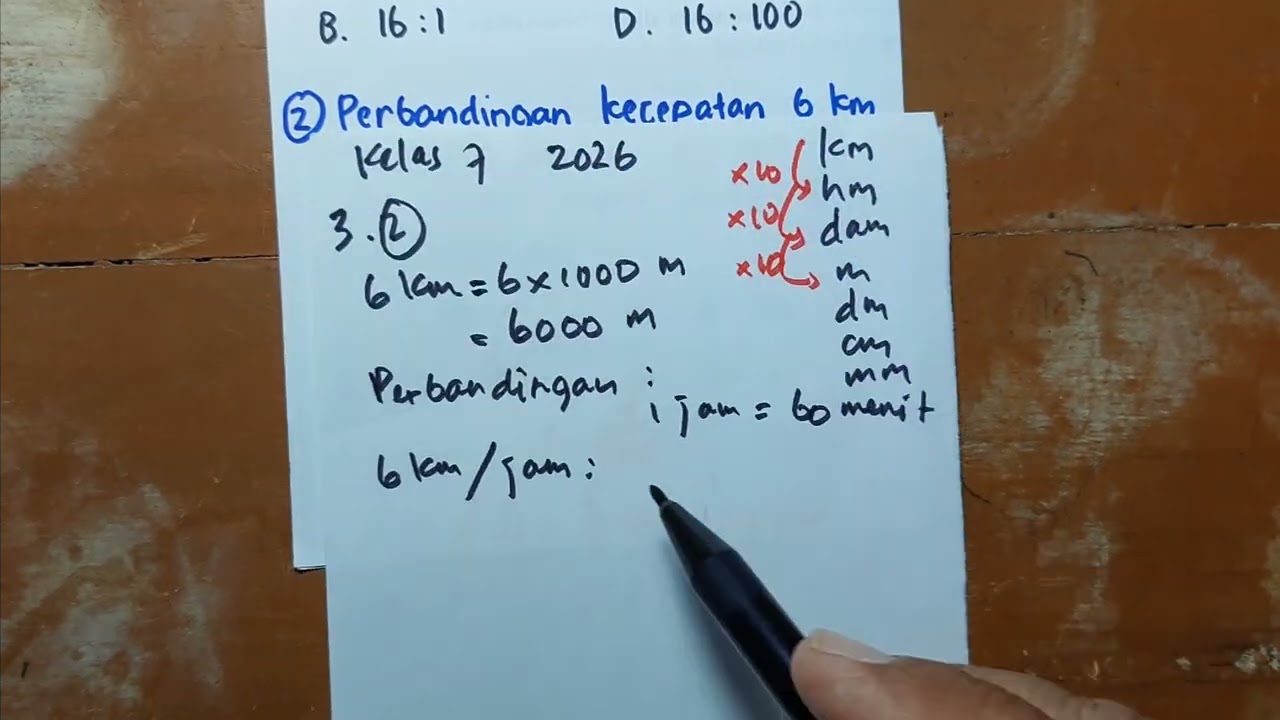 B. 16 : 1
D. 16 : 100
② Perbandingan kecepatan 6 km
Kelas 7 2026
3. ②
6 km = 6 x 1000 m
= 6000 m
Perbandingan :
1 jam = 60 menit
6 km / jam :
km
x10
hm
x10
dam
x10
m
dm
cm
mm